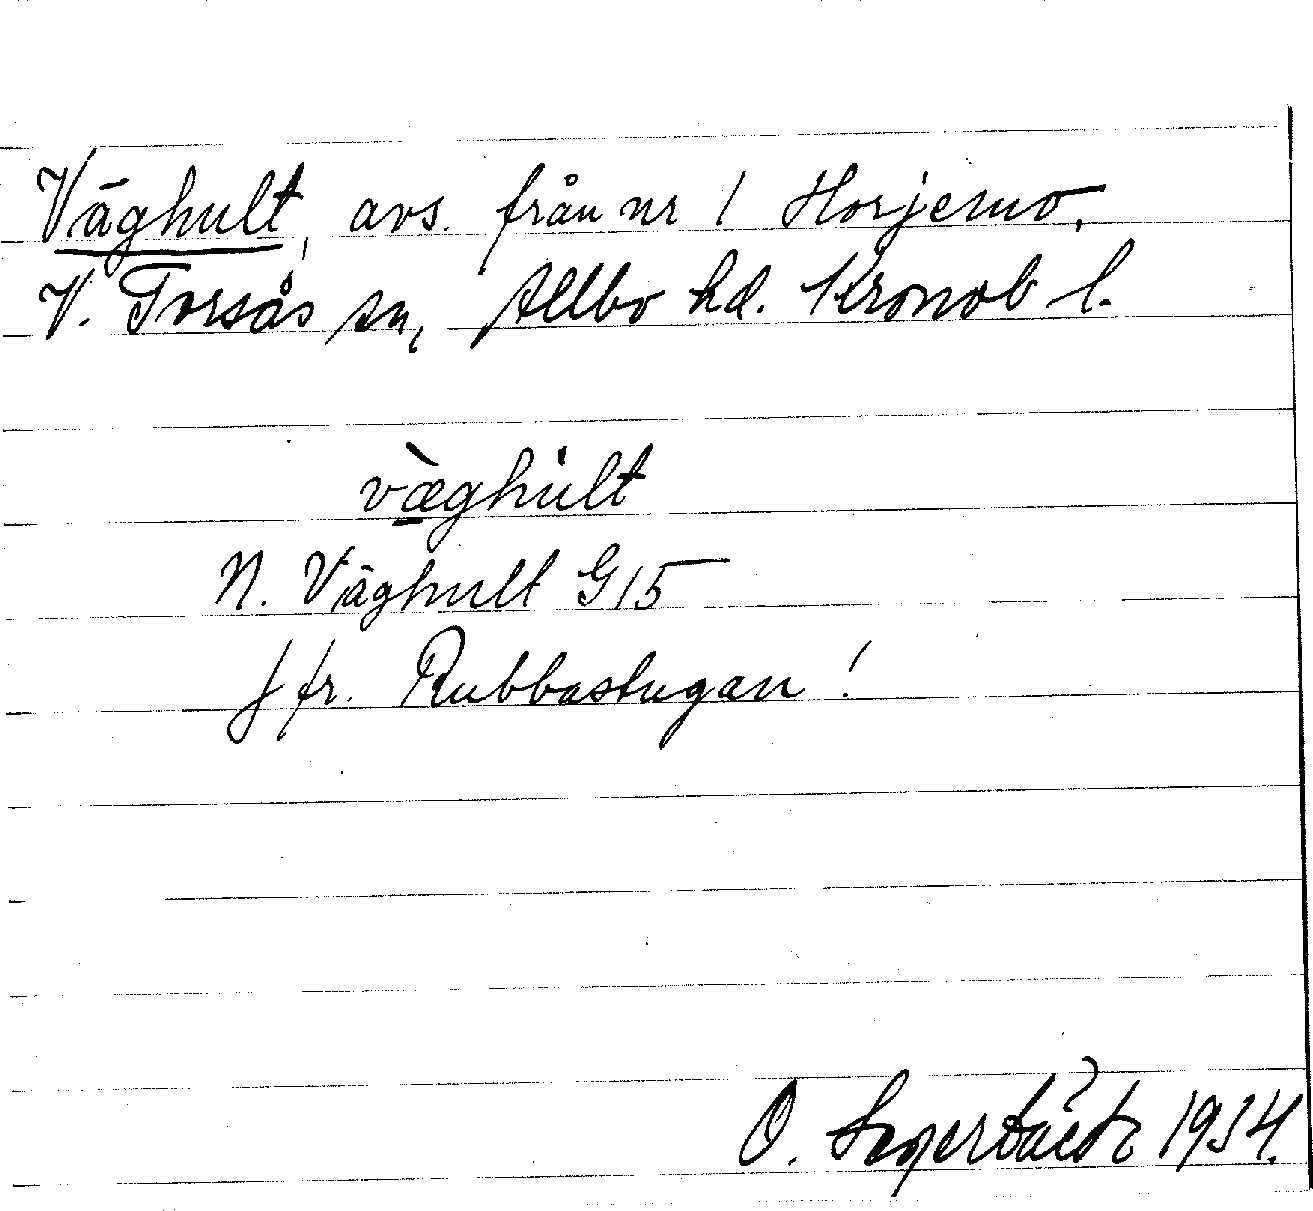 Väghult, avs. från nr 1 Horjemo,
V. Torsås sn, Allbo hd. Kronob l.
væ̀ghult
N. Väghult G15
Jfr. Rubbastugan!
O. 1934.